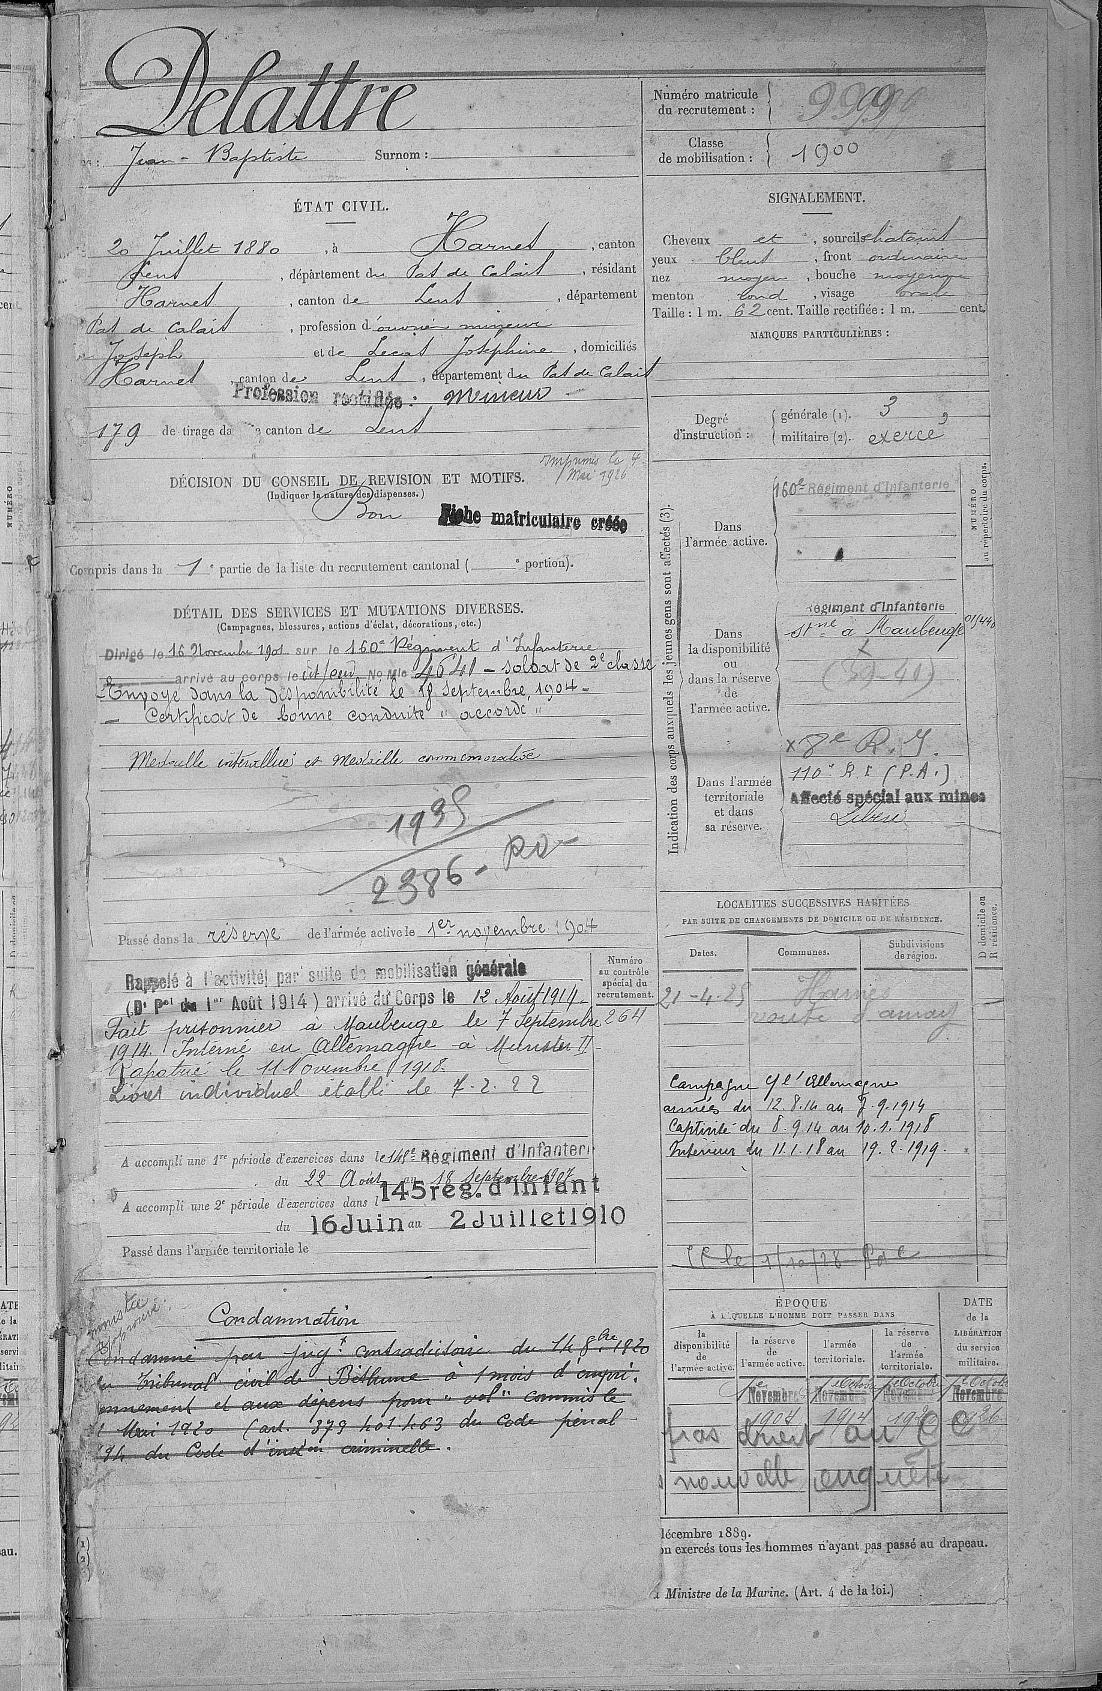 Delattre
Jean-Baptiste Surnom :
Numéro matricule
du recrutement :
Classe
de mobilisation : 1900
ÉTAT CIVIL.
20 Juillet 1880, à Harnes, canton
Lens, département du Pas de Calais, résidant
Harnes, canton de Lens, département
Pas de Calais, profession d'ouvrier mineur
Joseph et de Lecat Joséphine, domiciliés
Harnes, canton de Lens, département du Pas de Calais
Profession rectifiée : Mineur
179 de tirage da canton de Lens
SIGNALEMENT.
Cheveux et, sourcils chatains
yeux bleus, front ordinaire
nez moyen, bouche moyenne
menton rond, visage ovale
Taille : 1 m. 62 cent. Taille rectifiée : 1 m. cent.
MARQUES PARTICULIÈRES :
Degré
d'instruction :
générale (1). 3
militaire (2). exercé
DÉCISION DU CONSEIL DE REVISION ET MOTIFS.
(Indiquer la nature des dispenses.)
Mai 1926
Bon Fiche matriculaire créée
Compris dans la 1e partie de la liste du recrutement cantonal ( e portion).
DÉTAIL DES SERVICES ET MUTATIONS DIVERSES.
(Campagnes, blessures, actions d'éclat, décorations, etc.)
Dirigé le 16 Novembre 1901 sur le 160e Régiment d'Infanterie
arrivé au corps le dit jour No Mle 4641 – soldat de 2e classe
Envoyé dans la disponibilité le 18 Septembre 1904 –
– Certificat de bonne conduite "accordé"
Médaille interalliée et Médaille commémorative
1935
2386 - PO -
Passé dans la réserve de l'armée active le 1er novembre 1904
Indication des corps auxquels les jeunes gens sont affectés (3).
Dans
l'armée active.
160e Régiment d'Infanterie
NUMÉRO
au répertoire du corps.
Dans
la disponibilité
ou
dans la réserve
de
l'armée active.
Régiment d'Infanterie
stné à Maubeuge
Dans l'armée
territoriale
et dans
sa réserve.
x 8e R. I.
110e R I (P.A.)
Affecté spécial aux mines
Libéré
Numéro
au contrôle
spécial du
recrutement.
264
Rappelé à l'activité par suite de mobilisation générale
(Dt Pel du 1er Août 1914) arrivé au Corps le 12 Août 1914.
Fait prisonnier à Maubeuge le 7 Septembre
1914. Interné en Allemagne à Munster II
Rapatrié le 11 Novembre 1918.
Livret individuel établi le 7.2.22
A accompli une 1re période d'exercices dans le 148e Régiment d'Infanteri
du 22 Août au 18 Septembre 1907
A accompli une 2e période d'exercices dans l 145 reg. d'infant
du 16 Juin au 2 Juillet 1910
Passé dans l'armée territoriale le
LOCALITÉS SUCCESSIVES HABITÉES
PAR SUITE DE CHANGEMENTS DE DOMICILE OU DE RÉSIDENCE.
Dates.
Communes.
Subdivisions
de région.
D domicile ou
R résidence.
21-4-25 Harnes
route d'annay
Campagne c/ l'Allemagne
armées du 12.8.14 au 7.9.1914
Captivité du 8.9.14 au 10.1.1918
Intérieur du 11.1.18 au 19.2.1919.
Condamnation
Condamné par jugt contradictoire du 14 8bre 1920
Tribunal civil de Béthune à 1 mois d'empri-
onnement et aux dépens pour "vol" commis le
1 Mai 1920 (art. 379 401 463 du Code pénal
194 du Code d'inson criminelle.
ÉPOQUE
À LAQUELLE L'HOMME DOIT PASSER DANS
la
disponibilité
de
l'armée active.
la réserve
de
l'armée active.
l'armée
territoriale.
la réserve
de
l'armée
territoriale.
DATE
de la
LIBÉRATION
du service
militaire.
Novembre Novembre Novembre Novembre
1904 1914
pas droit au C C
nouvelle enquête
décembre 1889.
on exercés tous les hommes n'ayant pas passé au drapeau.
Ministre de la Marine. (Art. 4 de la loi.)